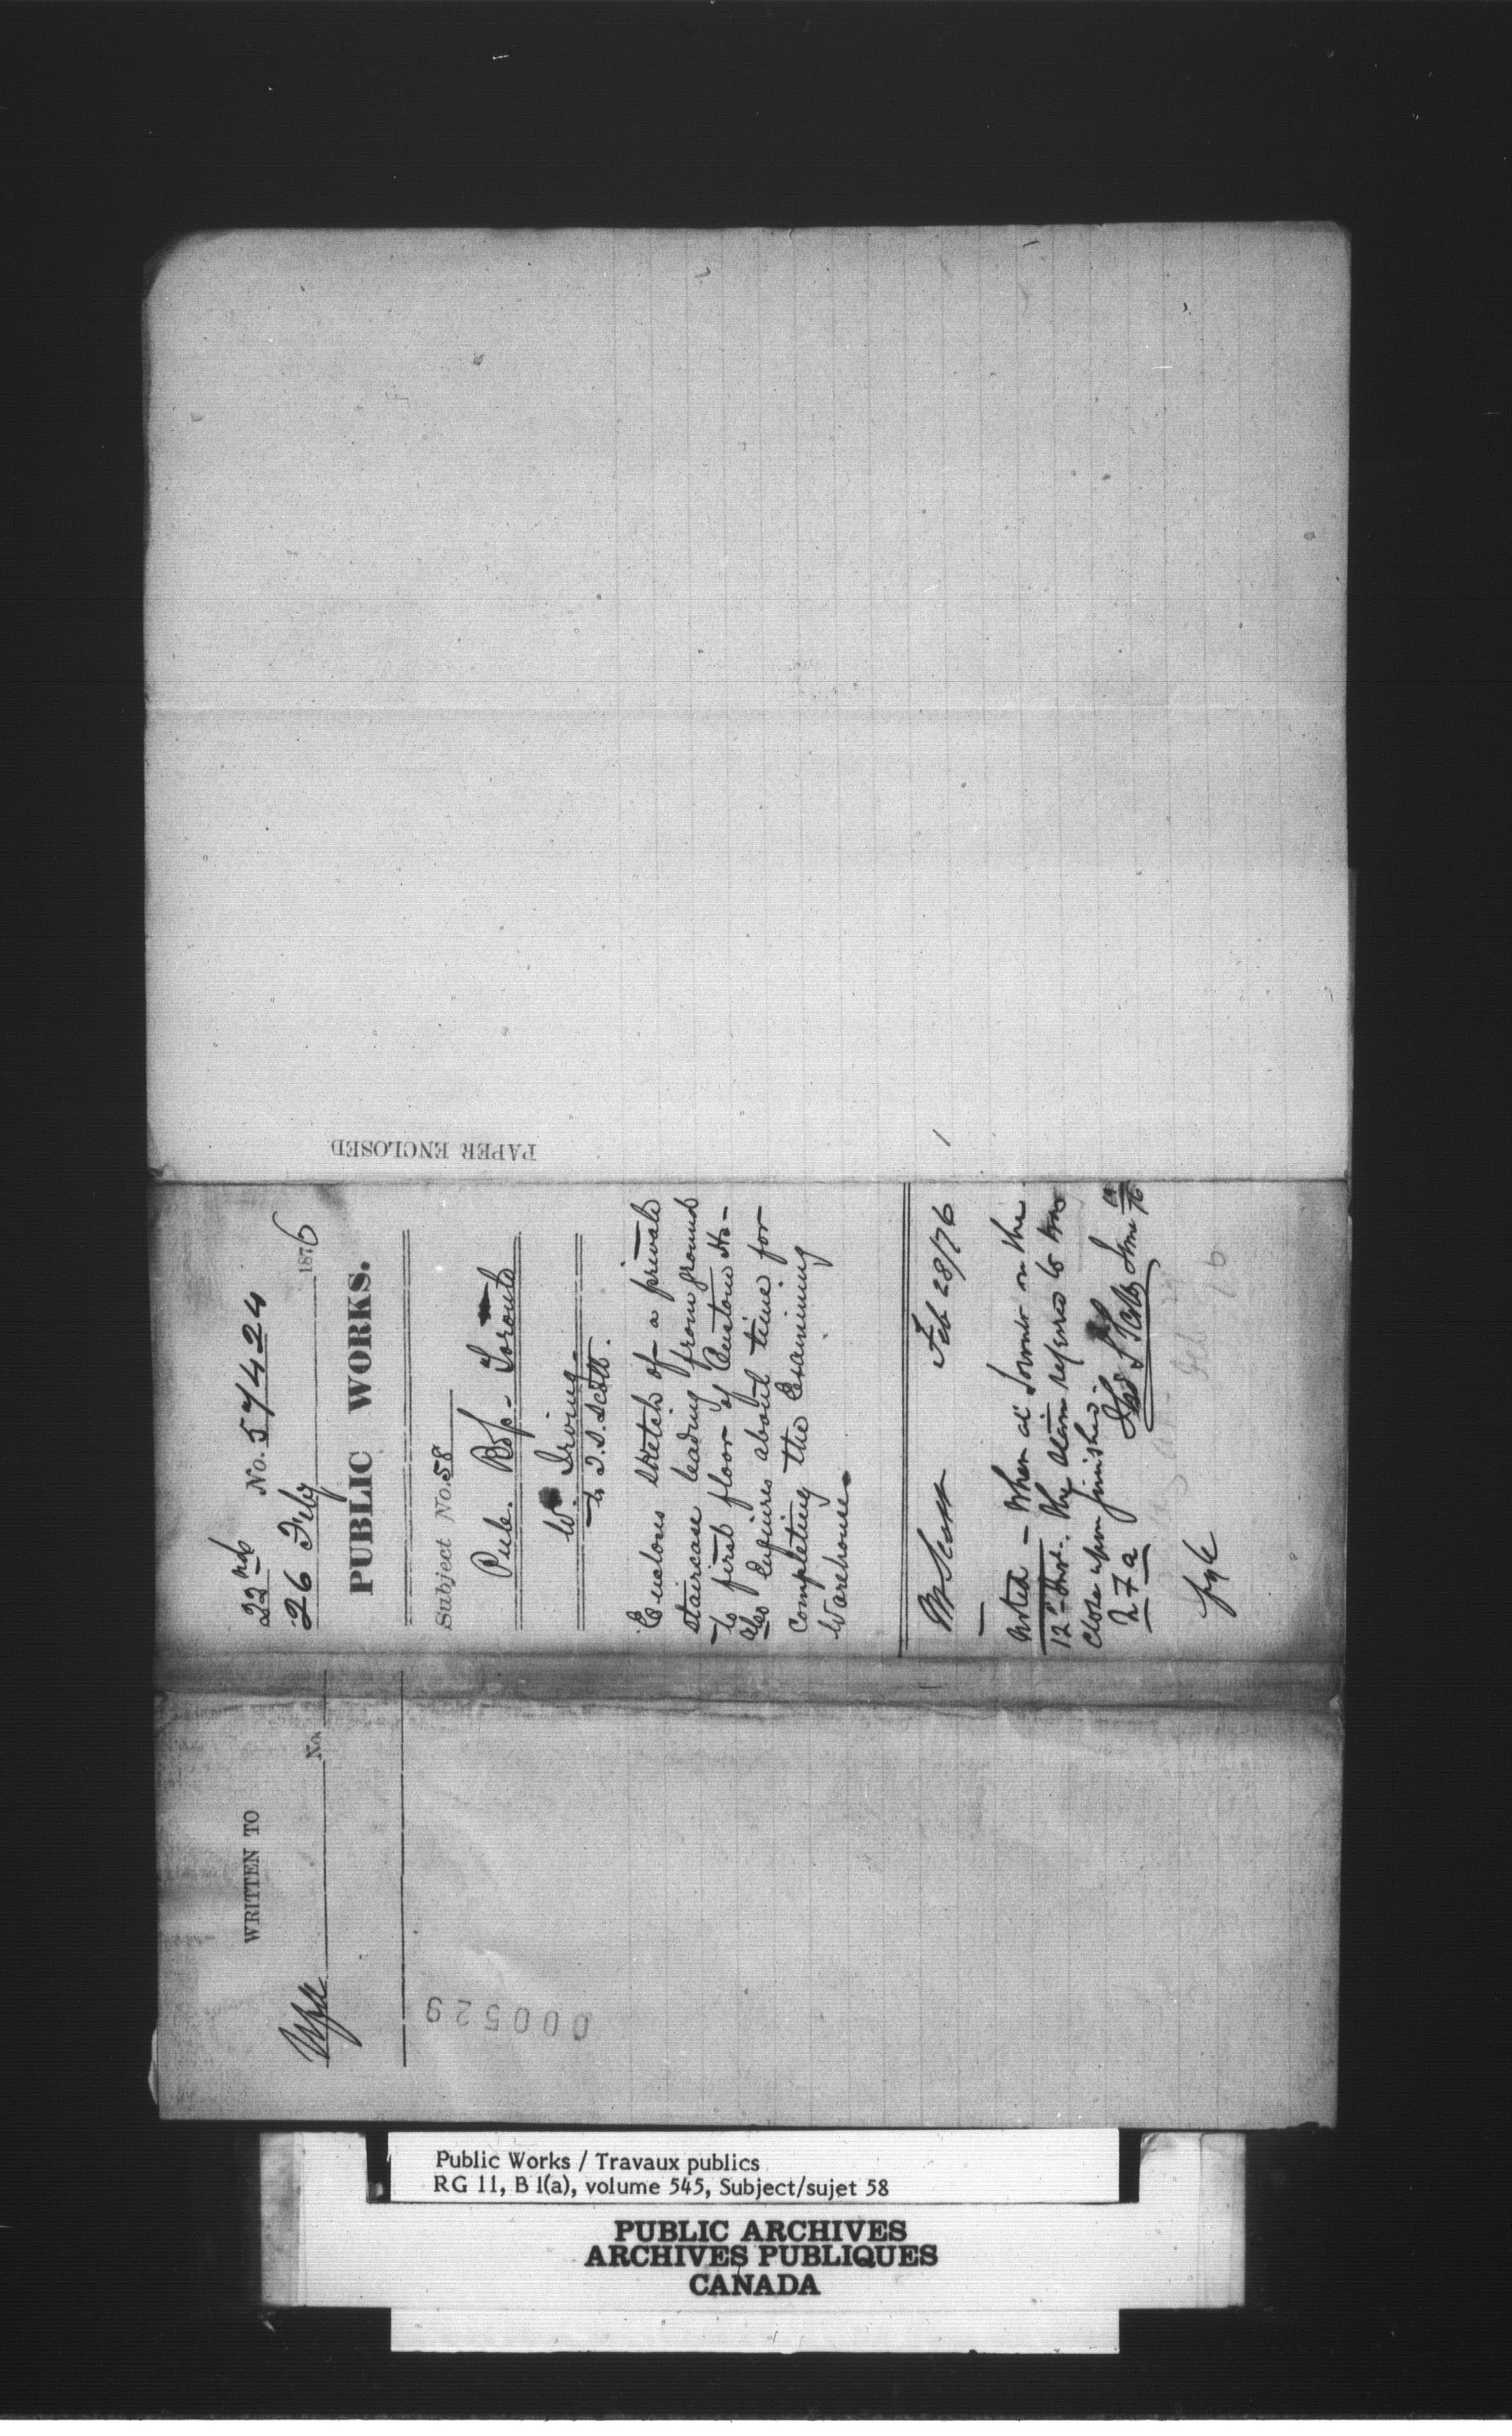 PAPER ENCLOSED
22nd No. 57424
26 Feby 1876
PUBLIC WORKS.
Subject No. 58
Pub. Bdgs - Toronto
W. Irving
to T.S. Scott.
Encloses sketch of a private
staircase leading from ground
to first floor of Custom Ho-
also Enquires about time for
completing the Examining
Warehouse
Mr Scott Feb 28/76
Noted - When at Toronto on the
12th Inst. the stairs referred to was
close upon finished.
Thos S Scott
WRITTEN TO
No.
000529
Public Works / Travaux publics
RG 11, B 1(a), volume 545, Subject/sujet 58
PUBLIC ARCHIVES
ARCHIVES PUBLIQUES
CANADA